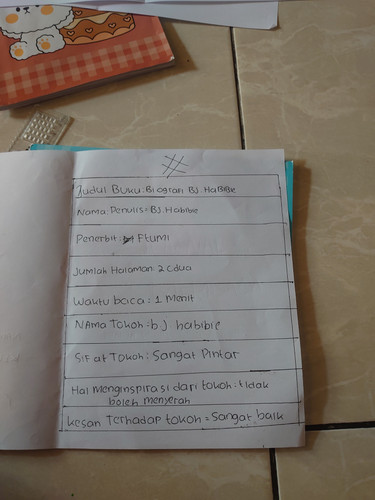 Judul Buku: Biografi BJ. Habibie
Nama Penulis: BJ. Habibie
Penerbit: Ftumi
Jumlah Halaman: 2 (dua
Waktu baca: 1 menit
NAma Tokoh: bj habibie
Sifat Tokoh: Sangat Pintar
Hal Menginspirasi dari tokoh: tidak
boleh menyerah
Kesan Terhadap tokoh = Sangat baik